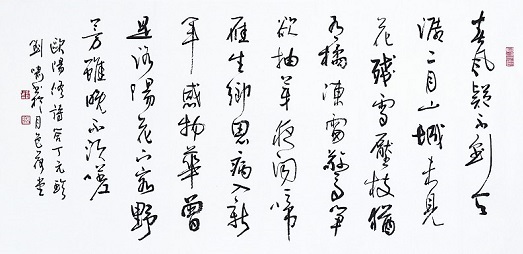 春風疑不到天
涯二月山城未見
花殘雪壓枝猶
有橘凍雷驚笋
欲抽芽夜聞啼
雁生鄉思病入新
年感物華曾
是洛陽花下客野
芳雖晚不須嗟
歐陽修詩答丁元珍
劉書於月色堂